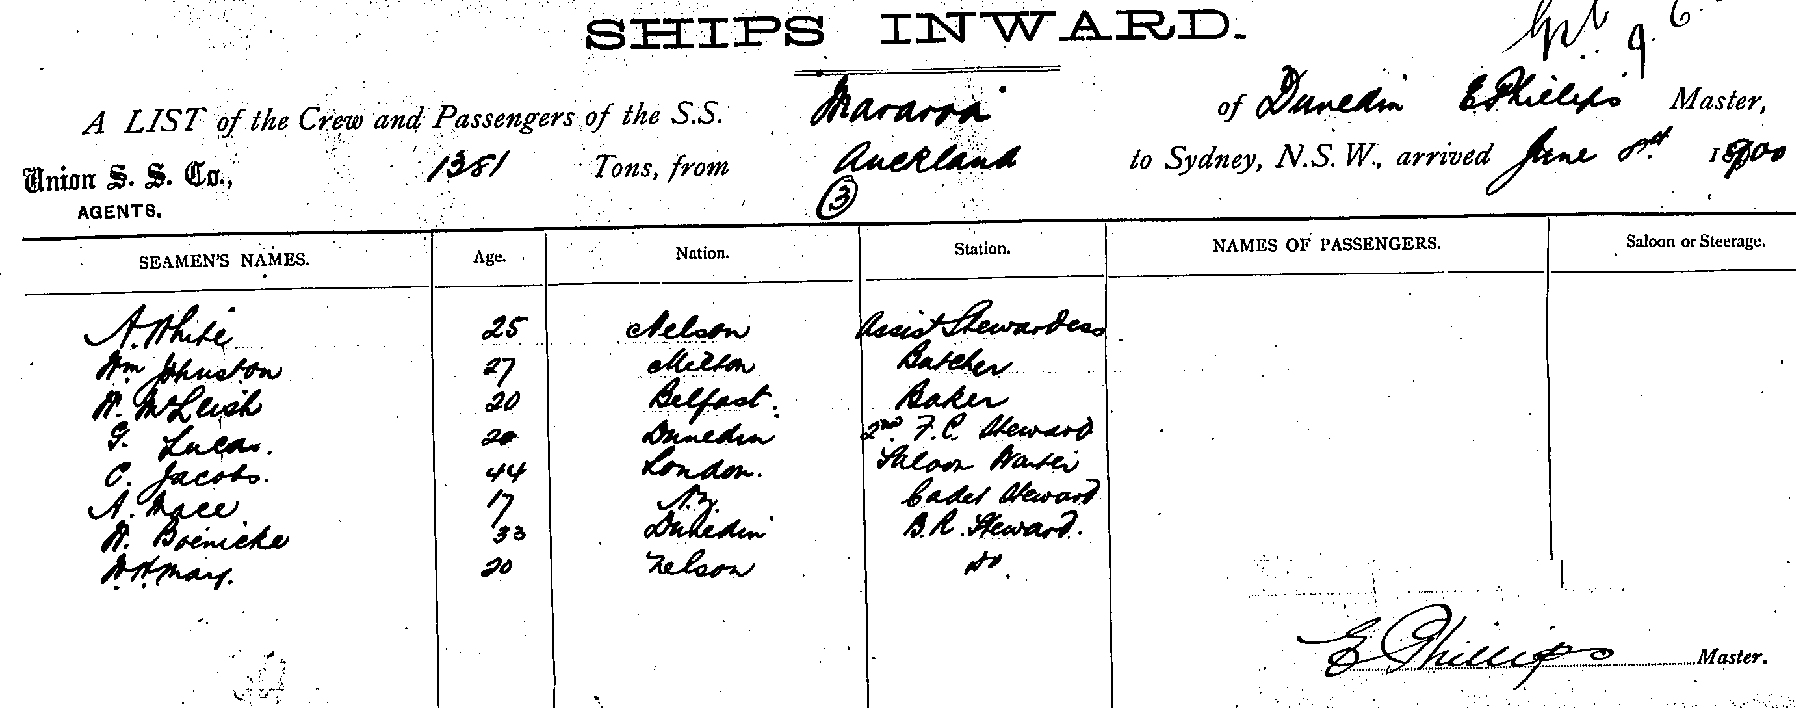 SHIPS INWARD.
A LIST of the Crew and Passengers of the S.S. Mararoa of Dunedin E Phillips Master,
Union S. S. Co., 1381 Tons, from Auckland to Sydney, N.S.W., arrived June 1900
AGENTS. 3
SEAMEN'S NAMES. Age. Nation. Station. NAMES OF PASSENGERS. Saloon or Steerage.
A. White 25 Nelson Assist Stewardess
Wm Johnston 27 Milton Butcher
A. McLeish 20 Belfast. Baker
G. Lucas. 20 Dunedin 2nd. F.C. Steward
C. Jacobs. 44 London. Saloon Waiter
A. Mace 17 N.Z. Cadet Steward
A. Boenicke 33 Dunedin B.R. Steward.
W.H. May. 20 Nelson do.
E Phillips Master.